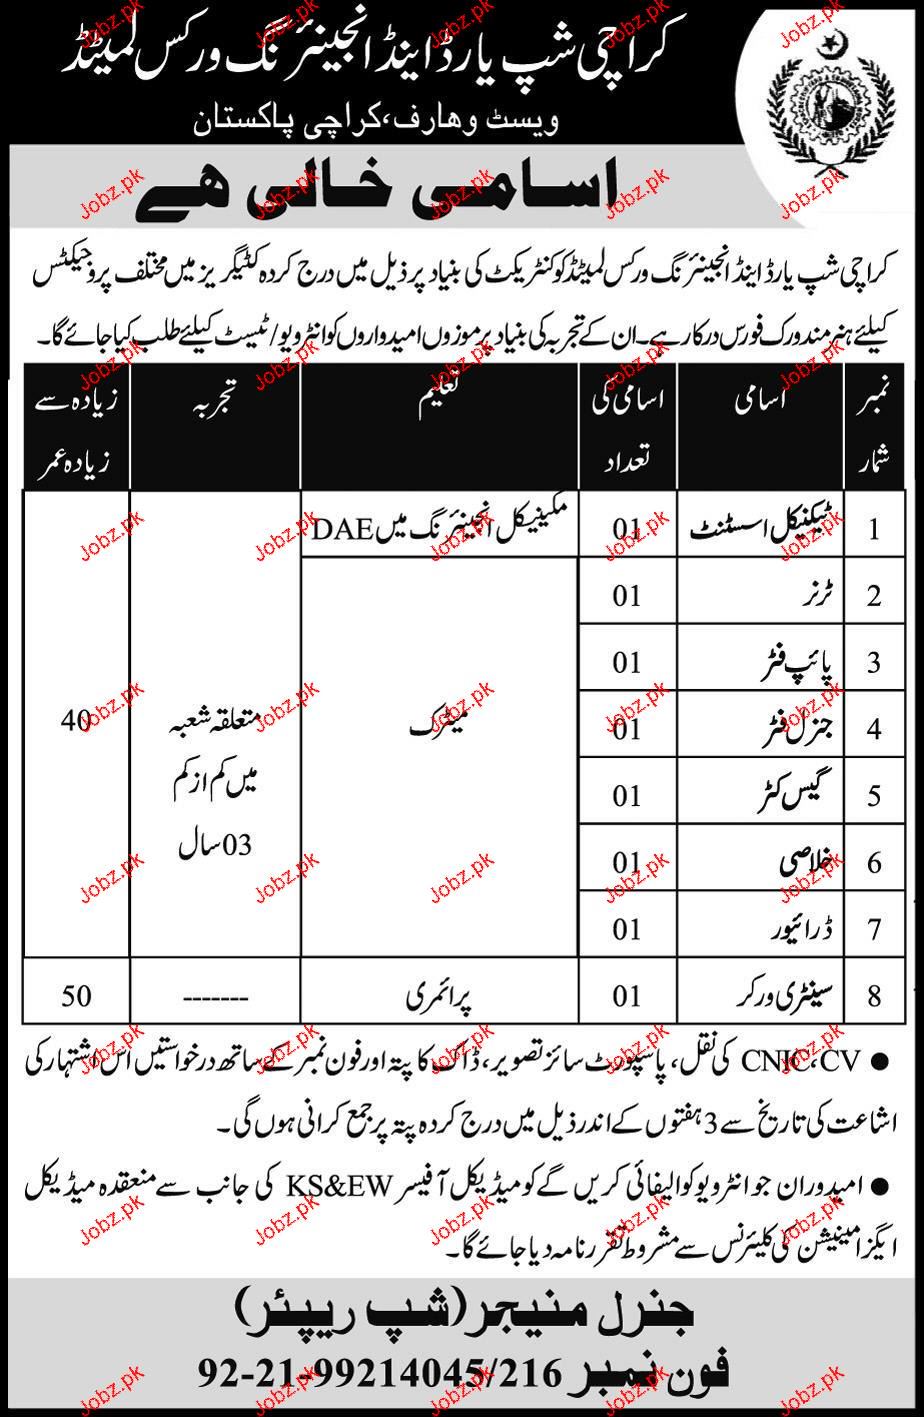 کراچی شپ یارڈ اینڈ انجینئرنگ ورکس لمیٹڈ
ویسٹ وھارف، کراچی پاکستان
اسامی خالی ھے
کراچی شپ یارڈ اینڈ انجینئرنگ ورکس لمیٹڈ کو کنٹریکٹ کی بنیاد پر ذیل میں درج کردہ کٹیگریز میں مختلف پروجیکٹس
کیلئے ہنر مند ورک فورس درکار ہے۔ ان کے تجربہ کی بنیاد پر موزوں امیدواروں کو انٹرویو/ ٹیسٹ کیلئے طلب کیا جائے گا۔
نمبر شمار | اسامی | اسامی کی تعداد | تعلیم | تجربہ | زیادہ سے زیادہ عمر
1 | ٹیکنیکل اسسٹنٹ | 01 | مکینیکل انجینئرنگ میں DAE
2 | ٹرنر | 01
3 | پائپ فٹر | 01
4 | جنرل فٹر | 01 | میٹرک | متعلقہ شعبہ میں کم از کم 03 سال | 40
5 | گیس کٹر | 01
6 | خلاصی | 01
7 | ڈرائیور | 01
8 | سینٹری ورکر | 01 | پرائمری | ------- | 50
● CNIC،CV کی نقل، پاسپورٹ سائز تصویر، ڈاک کا پتہ اور فون نمبر کے ساتھ درخواستیں اس اشتہار کی
اشاعت کی تاریخ سے 3 ہفتوں کے اندر ذیل میں درج کردہ پتہ پر جمع کرانی ہوں گی۔
● امیدوران جو انٹرویو کوالیفائی کریں گے کو میڈیکل آفیسر KS&EW کی جانب سے منعقدہ میڈیکل
ایگزامینیشن کی کلیئرنس سے مشروط تقرر نامہ دیا جائے گا۔
جنرل منیجر (شپ ریپئر)
فون نمبر 92-21-99214045/216
Jobz.pk